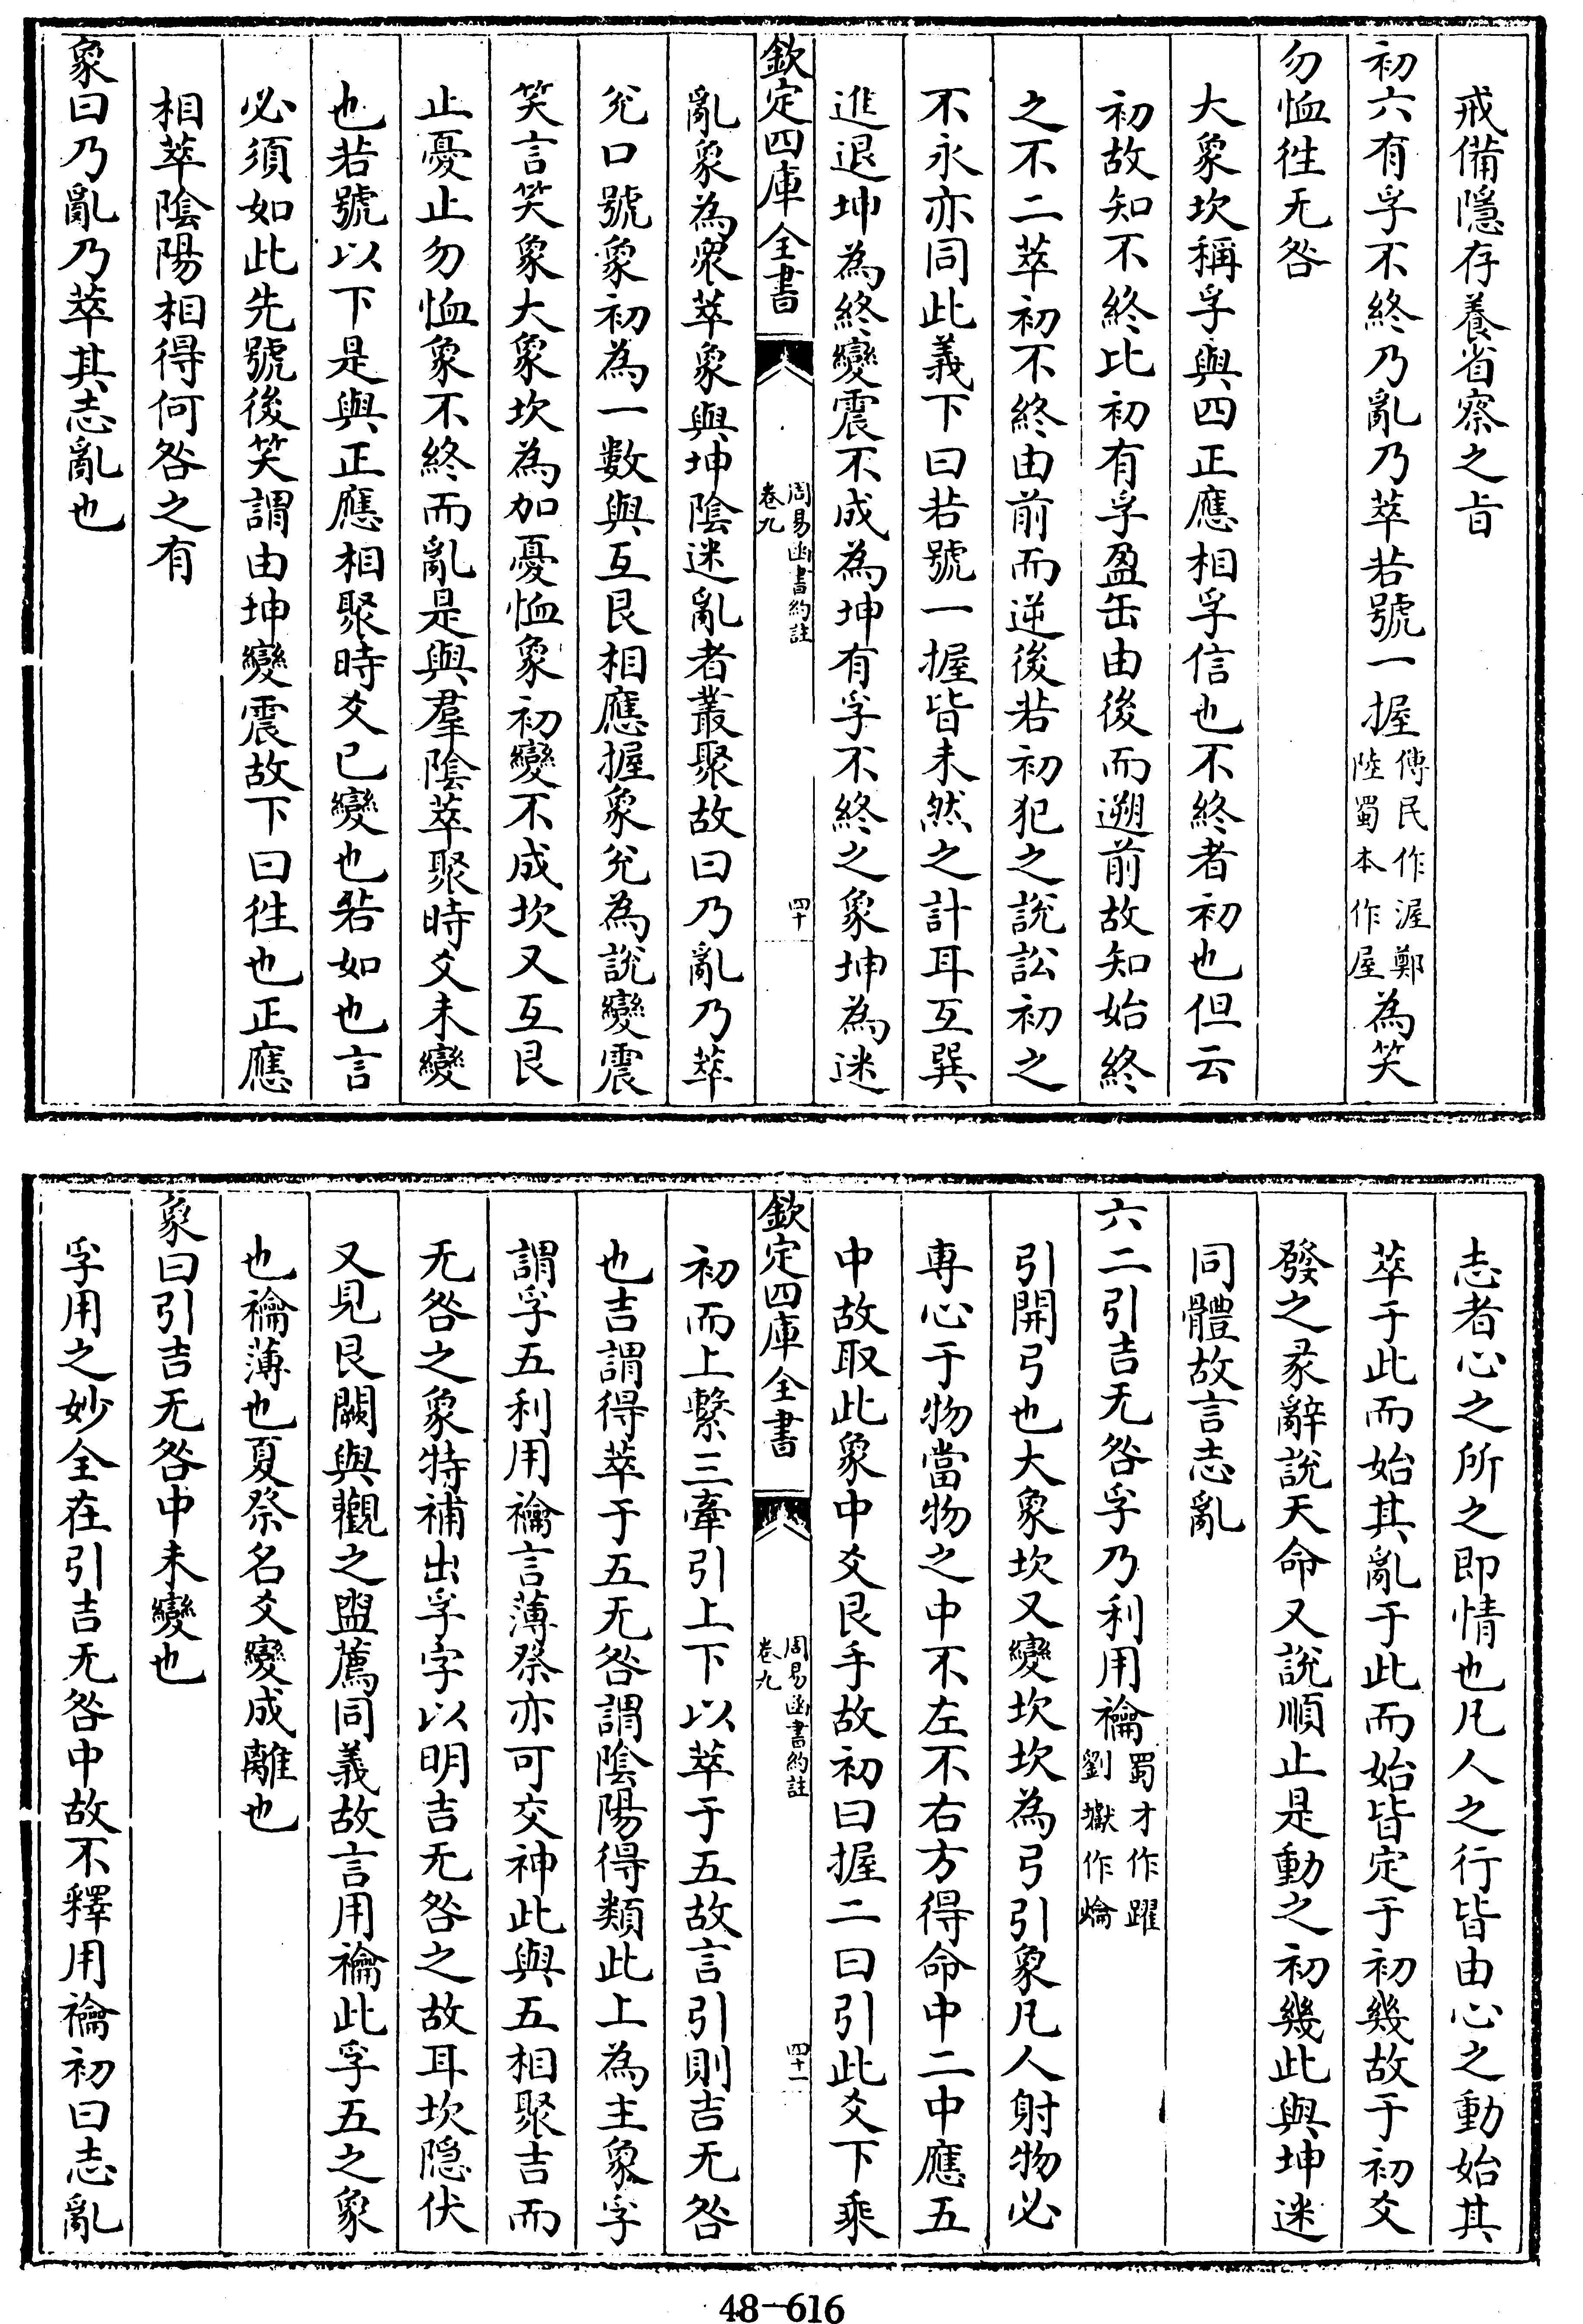 戒備隱存養省察之旨
初六有孚不終乃亂乃萃若號一握傅氏作渥鄭陸蜀本作屋為笑
勿恤徃无咎
大象坎稱孚與四正應相孚信也不終者初也但云
初故知不終比初有孚盈缶由後而遡前故知始終
之不二萃初不終由前而逆後若初犯之說訟初之
不永亦同此義下曰若號一握皆未然之計耳互巽
進退坤為終變震不成為坤有孚不終之象坤為迷
欽定四庫全書
周易函書約註
卷九
四十
亂象為衆萃象與坤陰迷亂者叢聚故曰乃亂乃萃
兊口號象初為一數與互艮相應握象兊為說變震
笑言笑象大象坎為加憂恤象初變不成坎又互艮
止憂止勿恤象不終而亂是與羣陰萃聚時爻未變
也若號以下是與正應相聚時爻已變也若如也言
必須如此先號後笑謂由坤變震故下曰徃也正應
相萃陰陽相得何咎之有
象曰乃亂乃萃其志亂也
志者心之所之即情也凡人之行皆由心之動始其
萃于此而始其亂于此而始皆定于初幾故于初爻
發之彖辭說天命又說順止是動之初幾此與坤迷
同體故言志亂
六二引吉无咎孚乃利用禴蜀才作躍劉嶽作爚
引開弓也大象坎又變坎坎為弓引象凡人射物必
専心于物當物之中不左不右方得命中二中應五
中故取此象中爻艮手故初曰握二曰引此爻下乘
欽定四庫全書
周易函書約註
卷九
四十一
初而上繫三牽引上下以萃于五故言引則吉无咎
也吉謂得萃于五无咎謂陰陽得類此上為主象孚
謂孚五利用禴言薄祭亦可交神此與五相聚吉而
无咎之象特補出孚字以明吉无咎之故耳坎隐伏
又見艮闕與觀之盥薦同義故言用禴此孚五之象
也禴薄也夏祭名爻變成離也
象曰引吉无咎中未變也
孚用之妙全在引吉无咎中故不釋用禴初曰志亂
48-616